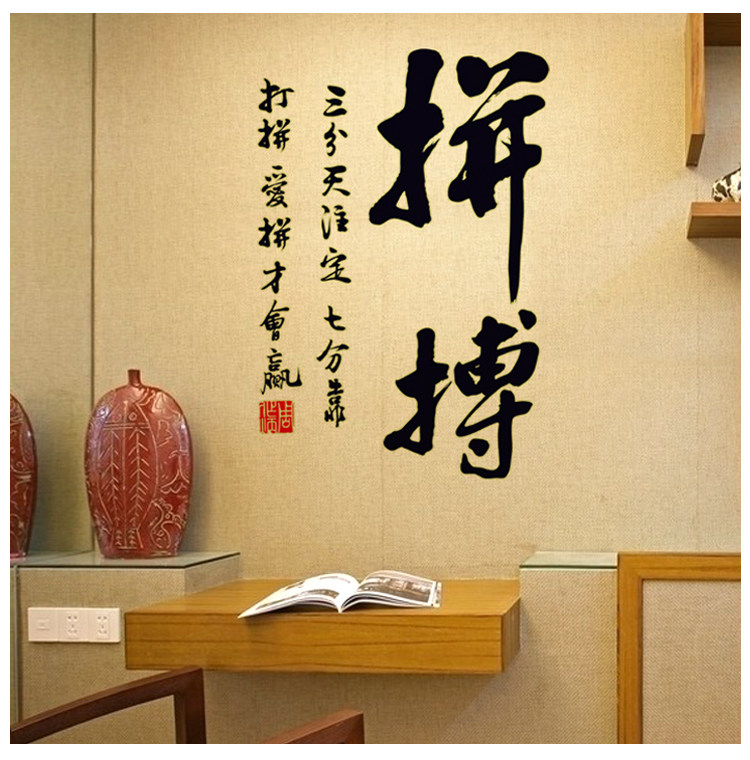 拼搏
三分天注定 七分靠
打拼 愛拼才會贏